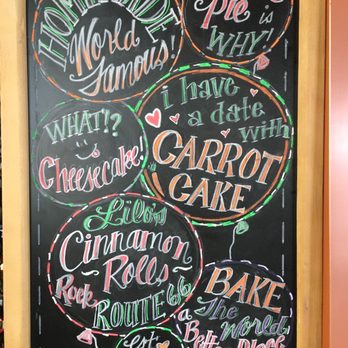 HOMEMADE
World
Famous!
Pie
is
WHY!
WHAT!?
Cheesecake!
i have
a date
with
CARROT
CAKE
Lilo's
Cinnamon
Rolls
Rock
ROUTE 66
BAKE
a The World
Better Place
est